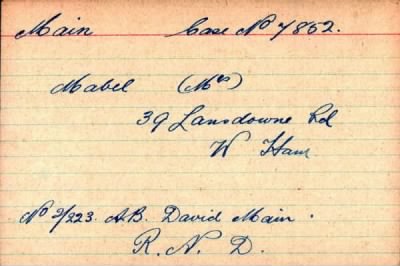 Main Case No 7852.
Mabel (Mrs)
39 Lansdowne Rd
W Ham
No 3/223. A.B. David Main.
R. N. D.